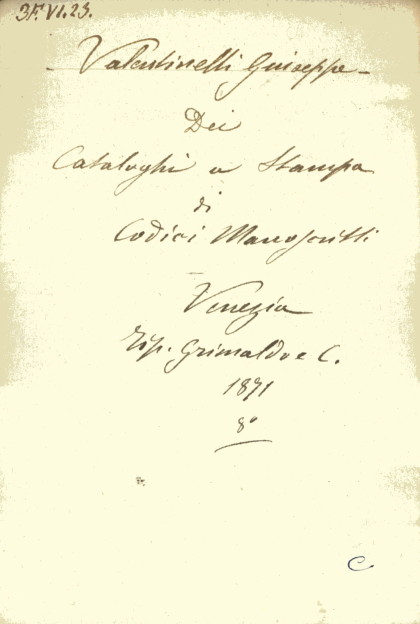 3.F.VI.23.
- Valentinelli Guiseppe -
Dei
Cataloghi a Stampa
di
Codici Manoscritti
Venezia
Tip. Grimaldo e C.
1871
8°
C